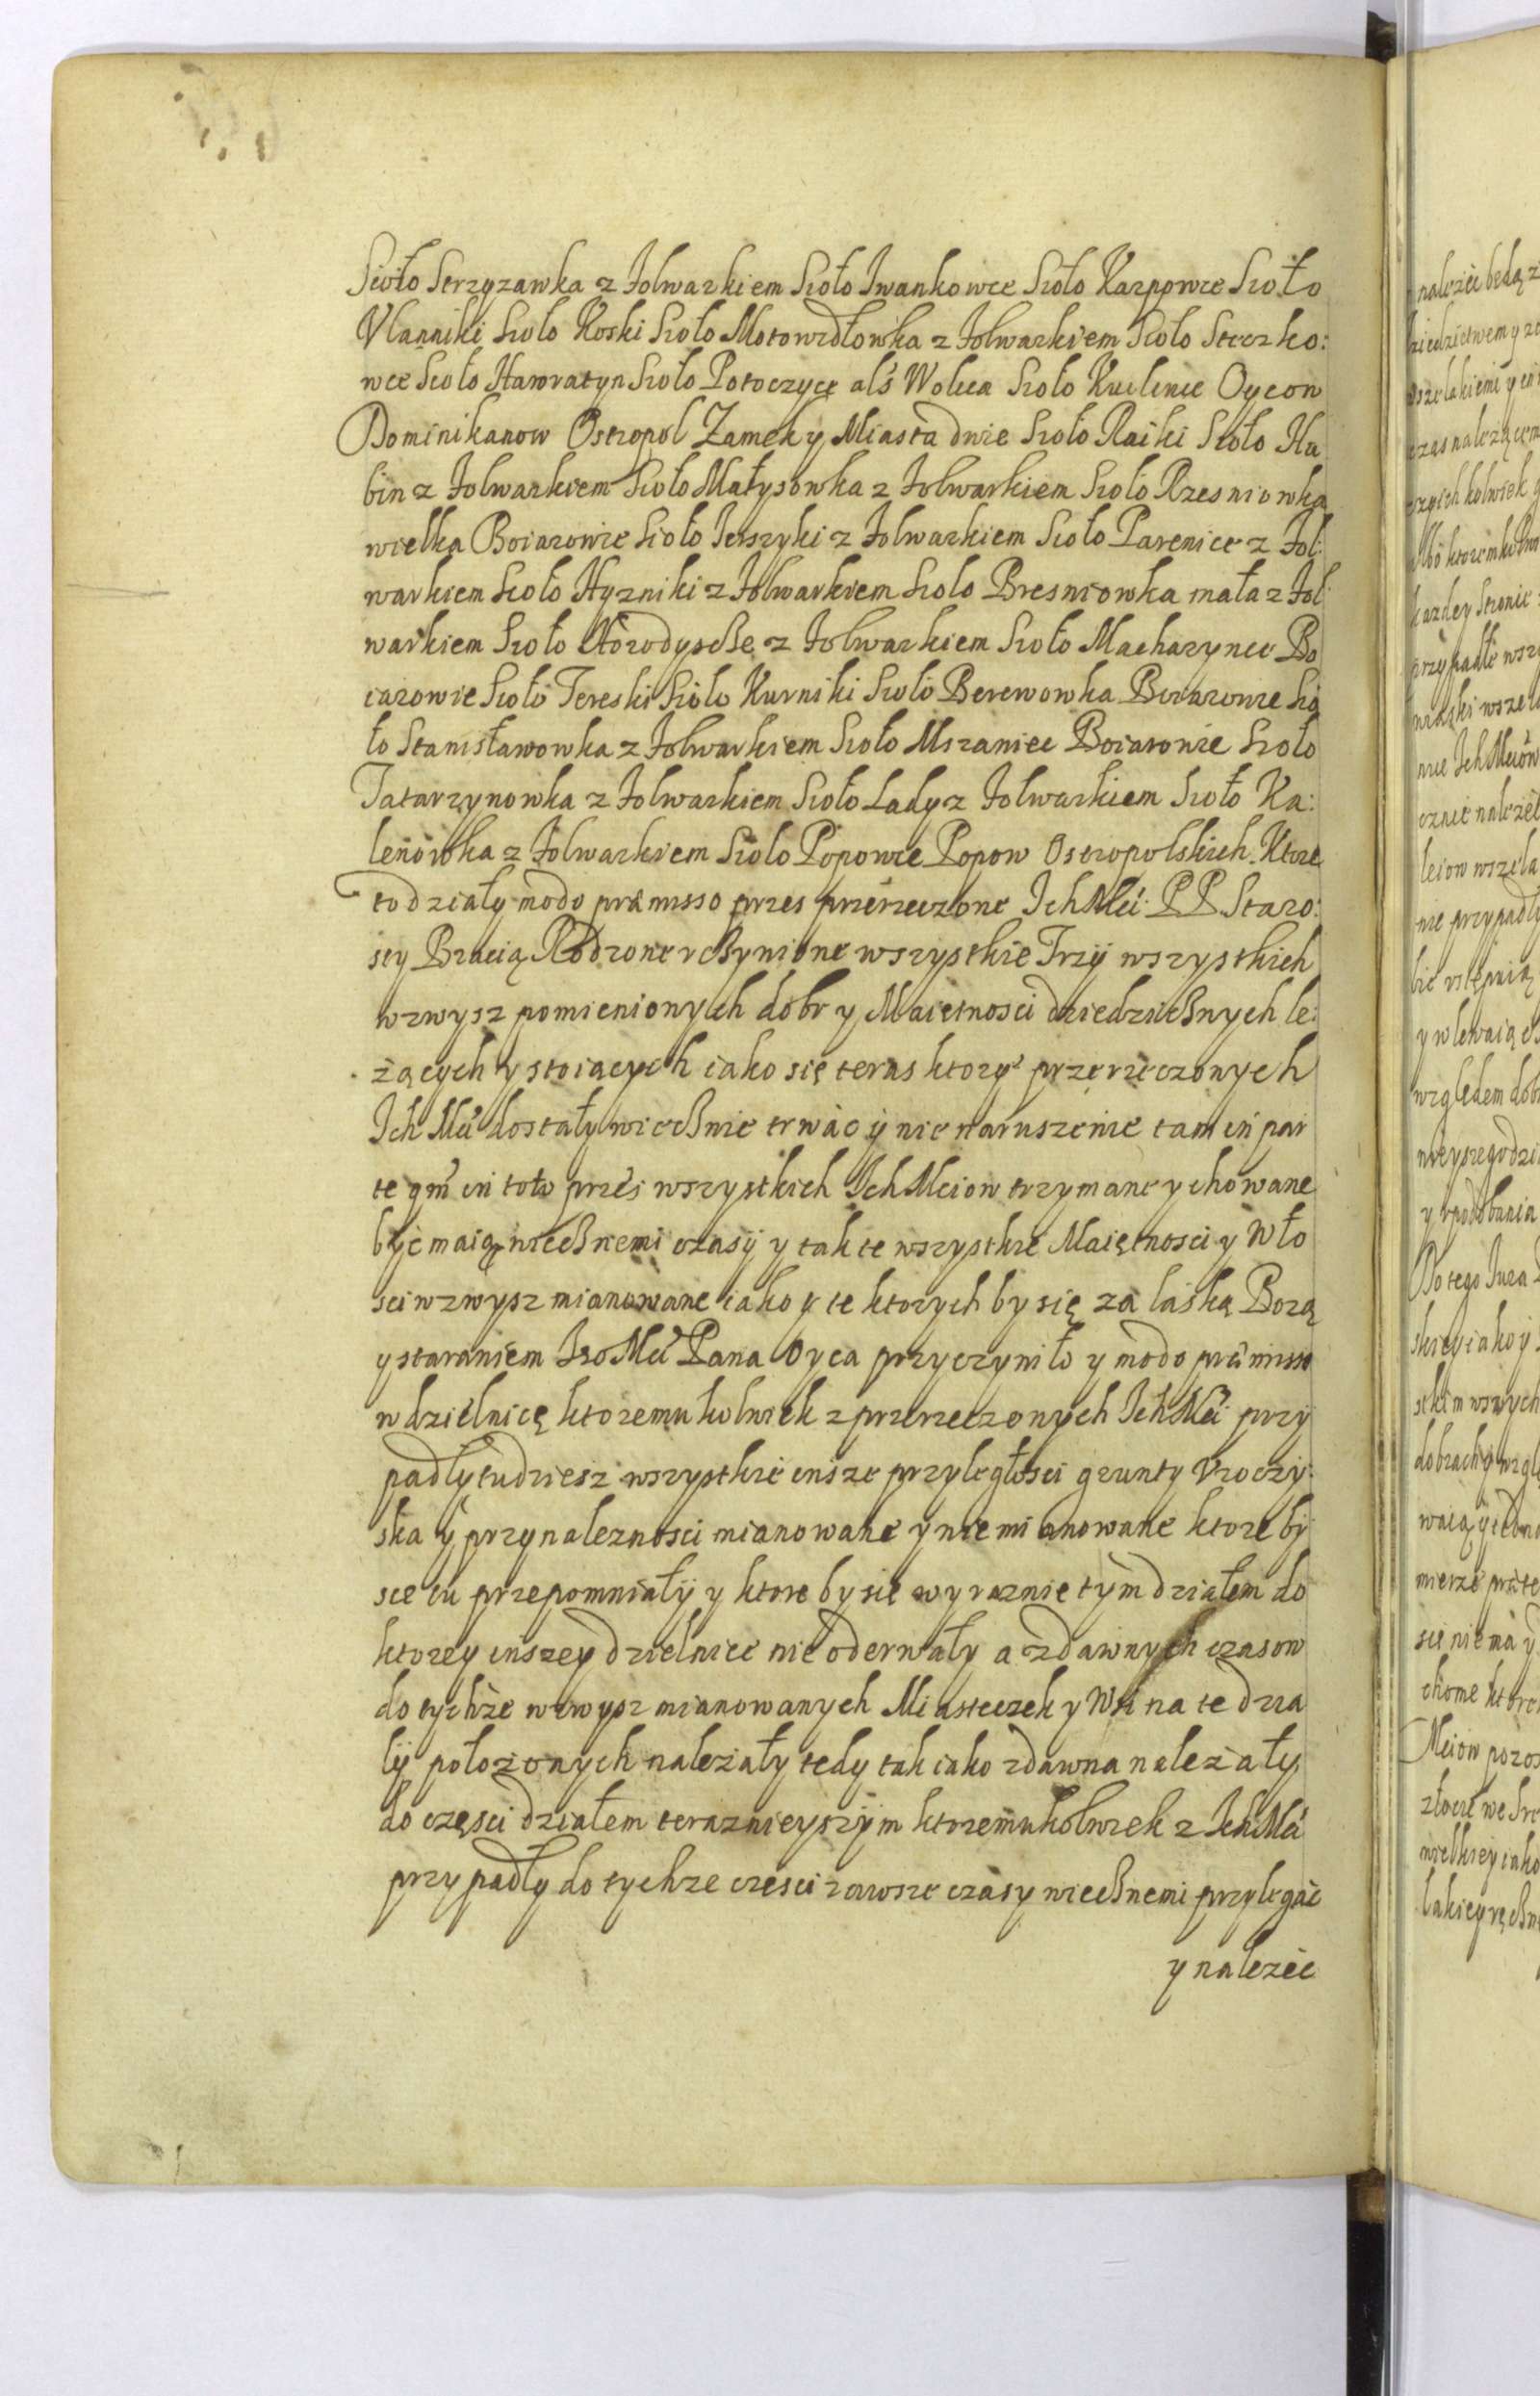 Sioło Serzyzawka z folwarkiem Sioło Iwankowce Sioło Karpowce Sioło
Vlanniki Sioło Koski Sioło Motowidłowka z folwarkiem Sioło Steczko:
wce Sioło Hawratyn Sioło Potoczyce als Wolica Sioło Kuclince Oycow
Dominikanow Ostropol Zamek y Miasta dwie Sioło Raiki Sioło Hu
bin z folwarkiem Sioło Małysowka z folwarkiem Sioło Rzesniowka
wielka Boiarowie Sioło Ierszyki z folwarkiem Sioło Parenice z fol:
warkiem Sioło Hyzniki z folwarkiem Sioło Bresniowka mała z fol
warkiem Sioło Horodyscße z folwarkiem Sioło Macharynce Bo
iarowie Sioło Tereski Sioło Kurniki Sioło Berewowka Boiarowie Sio
ło Stanisławowka z folwarkiem Sioło Mszaniec Boiarowie Sioło
Tatarzynowka z folwarkiem Sioło Lady z folwarkiem Sioło Ka:
lenowka z folwarkiem Sioło Popowce Popow Ostropolskich. Ktore
to działy modo præmisso przes przerzeczone Ich Mci: P P. Staro:
sty Bracią Rodzone vcßynione wszystkie Trzy wszystkich
wzwysz pomienionych dobr y Maiętnosci dziedzicßnych le:
żących y stoiących iako się teras ktory przerzeczonych
Ich Mci dostały wiecßnie trwać y nie naruszenie tam in par
te qm in toto przes wszystkich Ich Mciow trzymane y chowane
być maią wiecßnemi czasy y tak te wszystkie Maiętnosci y Wło
sci wzwysz mianowane iako y te ktorych by się za łaską Bozą
y staraniem Ieo Mci Pana Oyca przyczyniło y modo præmisso
w dzielnicę ktoremu kolwiek z przerzeczonych Ich Mci przy
padły tudziesz wszystkie insze przyległosci grunty Vroczy:
ska y przynaleznosci mianowane y nie mianowane ktore by
sie tu przepomniały y ktore by sie wyraznie tym działem do
ktorey inszey dzielnice nie oderwały a zdawnych czasow
do tychże wzwysz mianowanych Miasteczek y Wsi na te dzia
ły położonych należały tedy tak iako zdawna należały
do częsci działem teraznieyszym ktoremukolwiek z Ich Mci
przypadły do tychze czesci zawsze czasy wiecßnemi przylegać
y nalezec